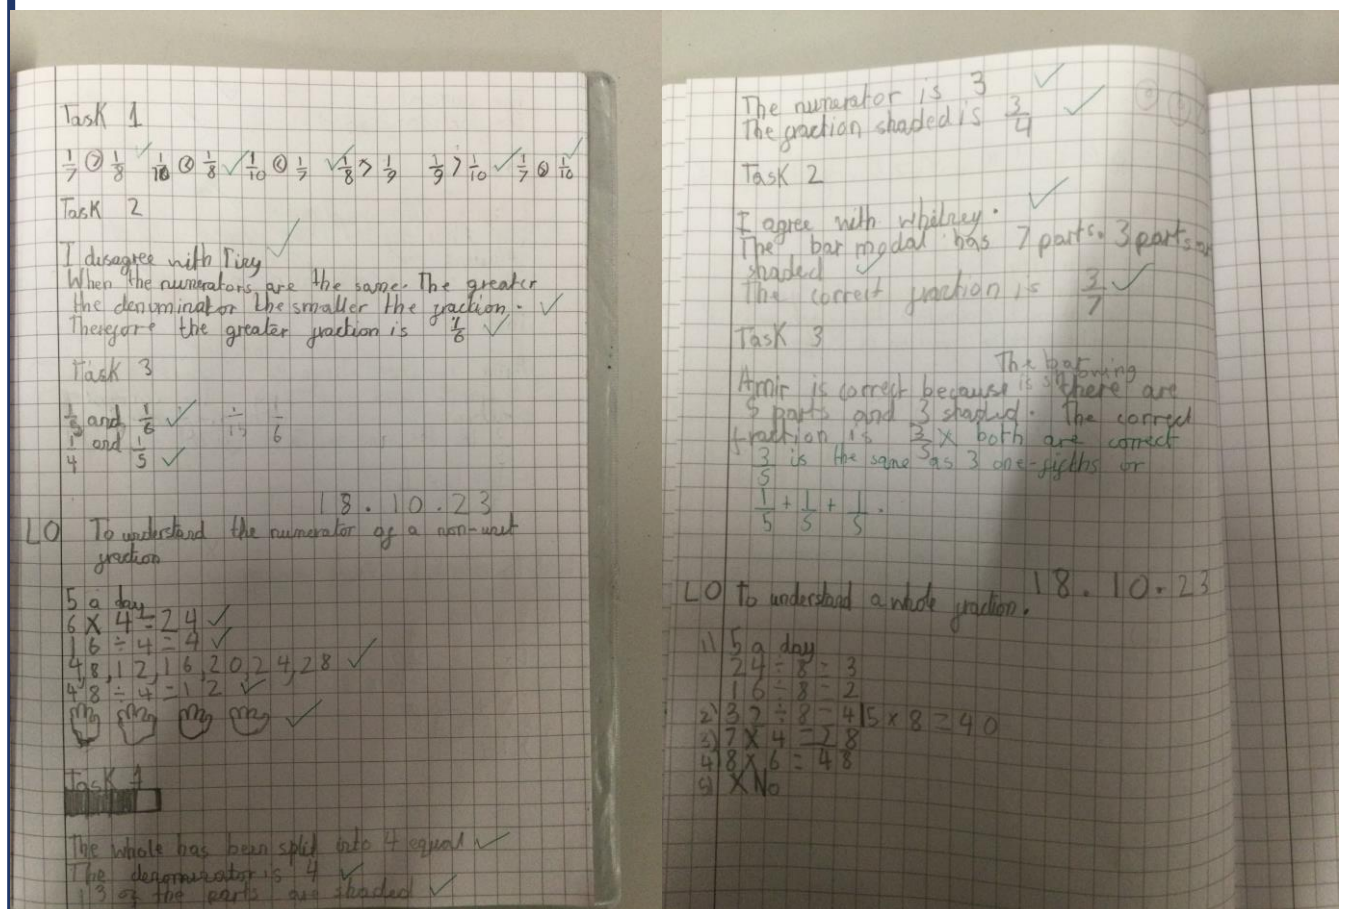 Task 1
1/7 > 1/8 1/10 < 1/8 1/10 < 1/7 1/8 > 1/9 1/9 > 1/10 1/7 > 1/10
Task 2
I disagree with Tiny
When the numerators are the same. The greater
the denominator the smaller the fraction.
Therefore the greater fraction is 1/6
Task 3
and 1/6 ÷ 1/6
1/4 and 1/5
18.10.23
LO To understand the numerator of a non-unit
fraction
5 a day
6 x 4 = 24
16 ÷ 4 = 4
4,8,12,16,20,24,28
48 ÷ 4 = 12
Task 1
The whole has been split into 4 equal
The denominator is 4
3 of the parts are shaded
The numerator is 3
The fraction shaded is 3/4
Task 2
I agree with Whitney.
The bar modal has 7 parts. 3 parts
shaded
The correct fraction is 3/7
Task 3
The bar
is showing
Amir is correct because there are
5 parts and 3 shaded. The correct
fraction is 3/5 x both are correct
3/5 is the same as 3 one-fifths or
1/5 + 1/5 + 1/5.
18.10.23
LO To understand a whole fraction.
1) 5 a day
24 ÷ 8 = 3
16 ÷ 8 = 2
2) 32 ÷ 8 = 4 5 x 8 = 40
3) 7 x 4 = 28
4) 8 x 6 = 48
5) X No